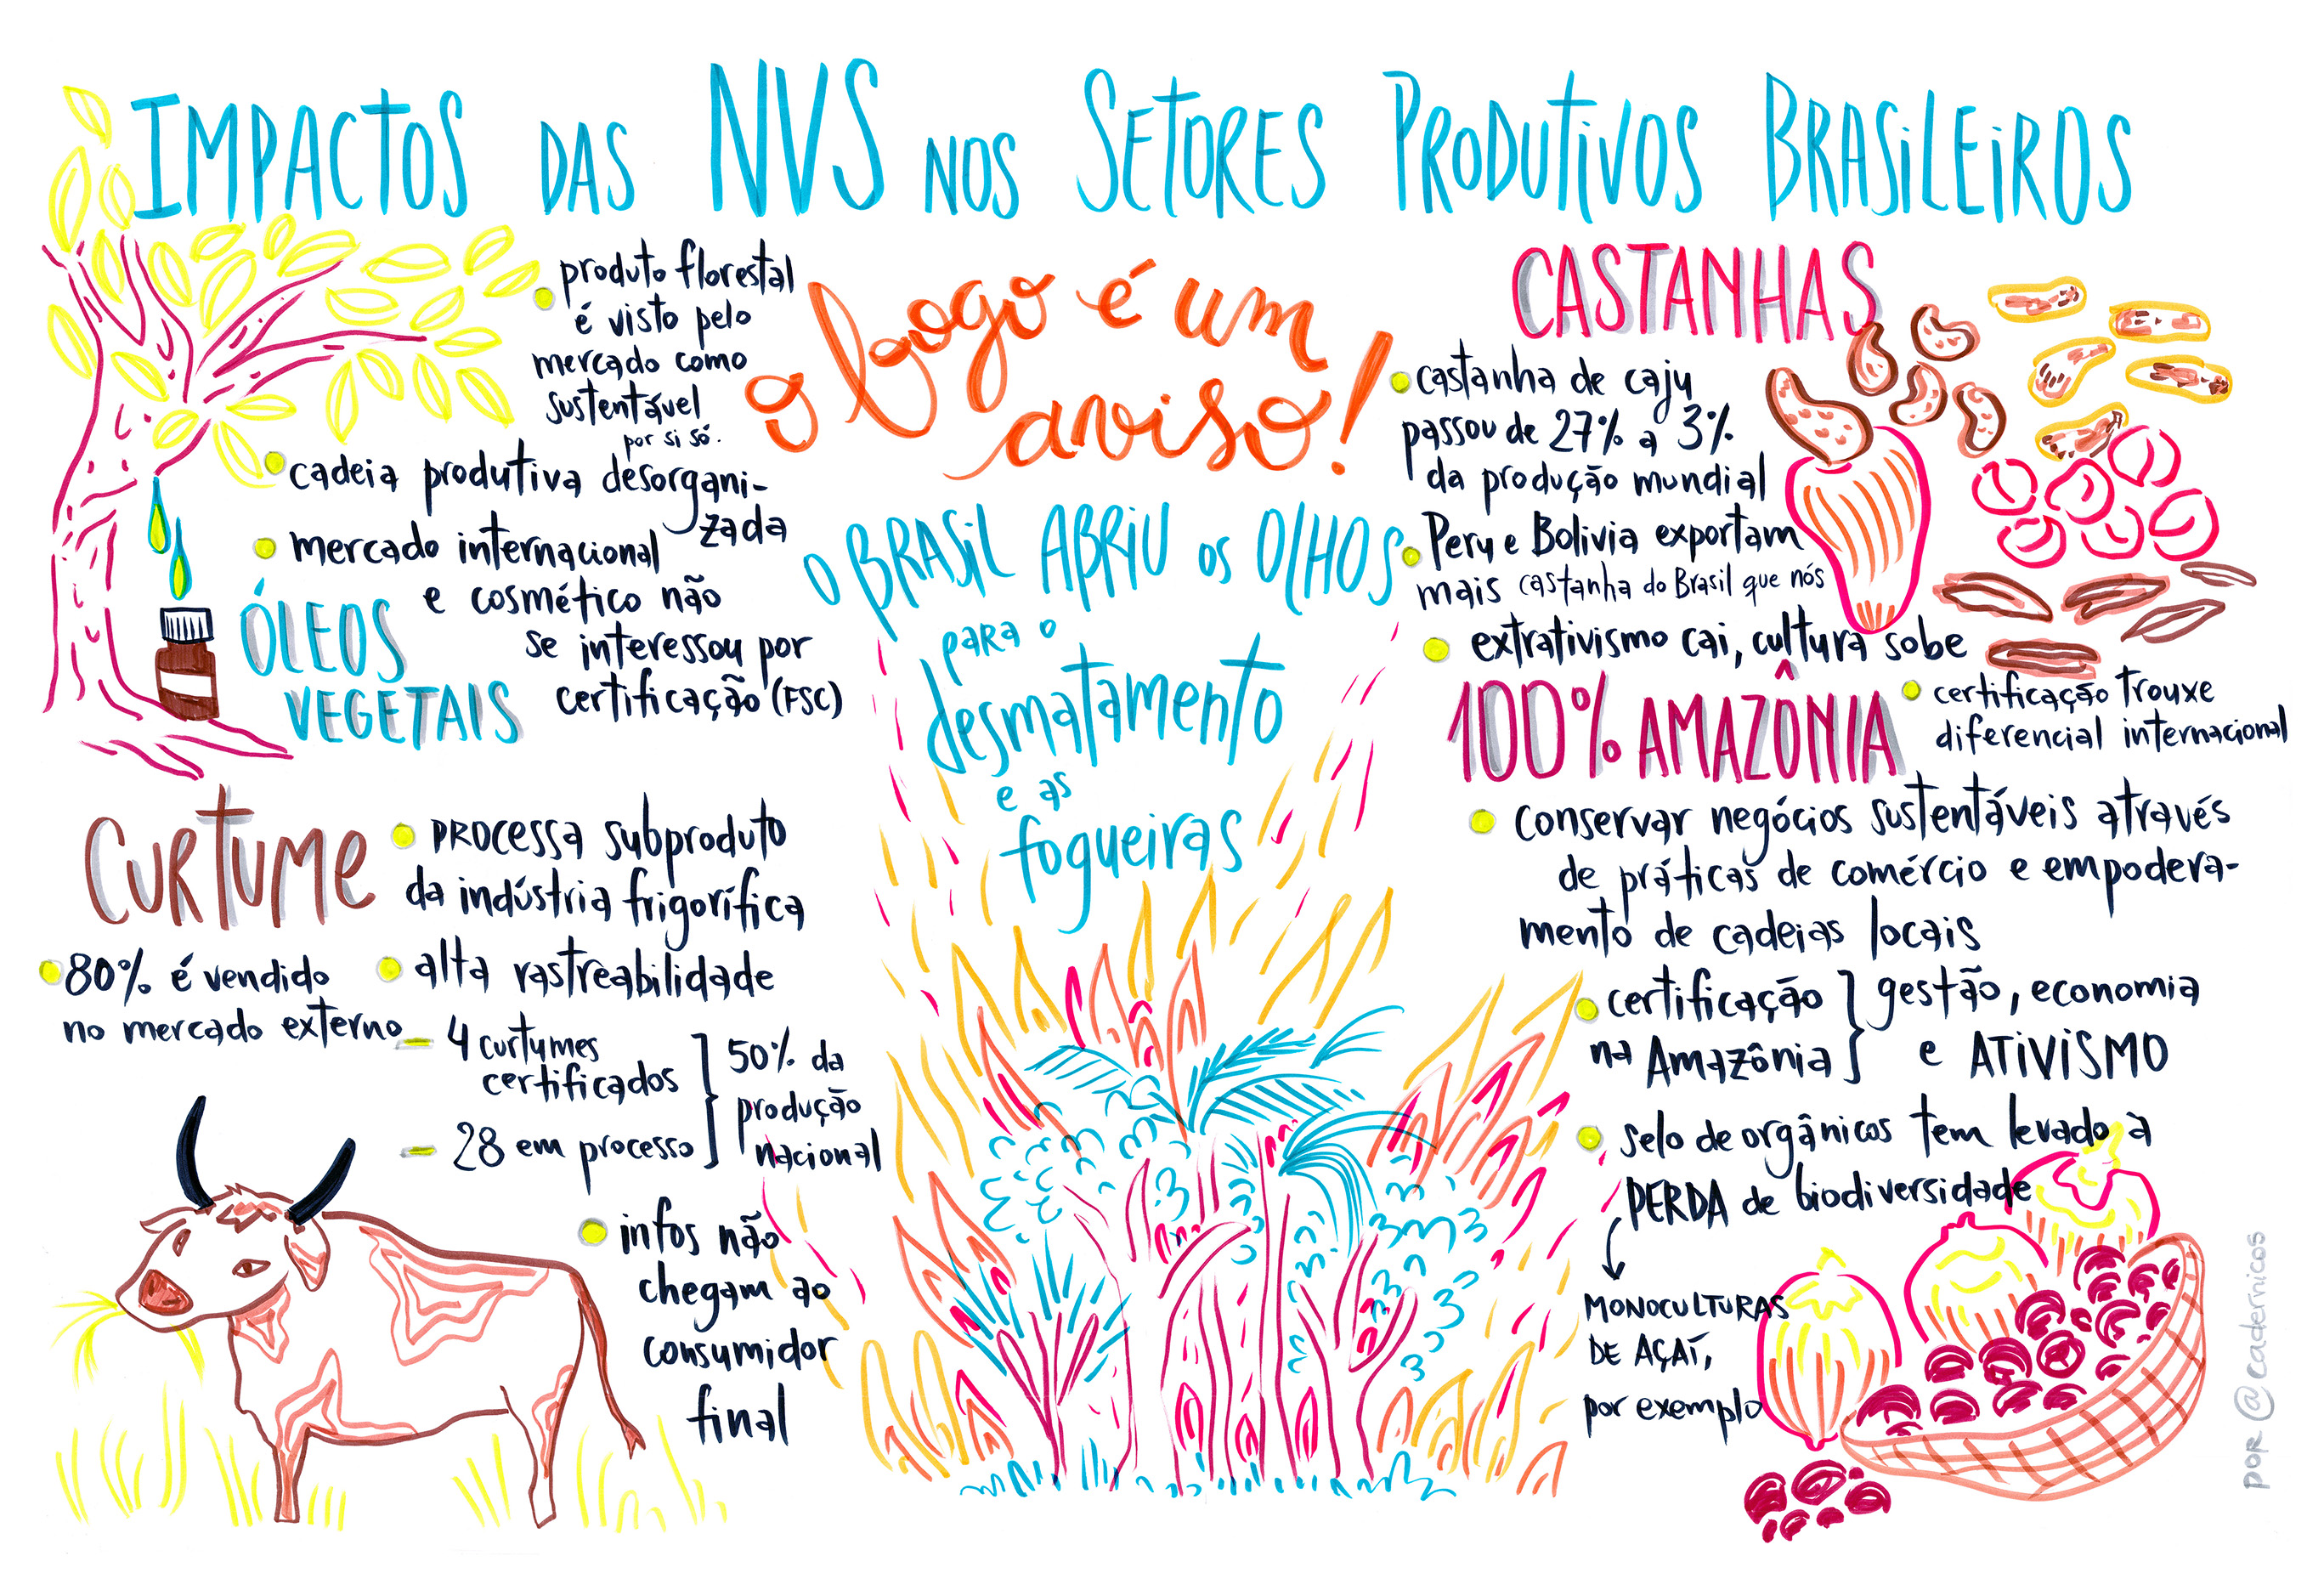 IMPACTOS DAS NVS NOS SETORES PRODUTIVOS BRASILEIROS
produto florestal
é visto pelo
mercado como
sustentável
por si só.
cadeia produtiva desorgani-
zada
mercado internacional
e cosmético não
se interessou por
certificação (FSC)
ÓLEOS
VEGETAIS
CURTUME
PROCESSA subproduto
da indústria frigorífica
80% é vendido
no mercado externo
alta rastreabilidade
- 4 curtumes
certificados
- 28 em processo
50% da
produção
nacional
infos não
chegam ao
consumidor
final
o fogo é um
aviso!
O BRASIL ABRIU os OLHOS
para o
desmatamento
e as
fogueiras
CASTANHAS
castanha de caju
passou de 27% a 3%
da produção mundial
Peru e Bolivia exportam
mais castanha do Brasil que nós
extrativismo cai, cultura sobe
100% AMAZÔNIA
certificação trouxe
diferencial internacional
conservar negócios sustentáveis através
de práticas de comércio e empodera-
mento de cadeias locais
certificação
na Amazônia
gestão, economia
e ATIVISMO
selo de orgânicos tem levado à
PERDA de biodiversidade
MONOCULTURAS
DE AÇAÍ,
por exemplo
por @cadernicos